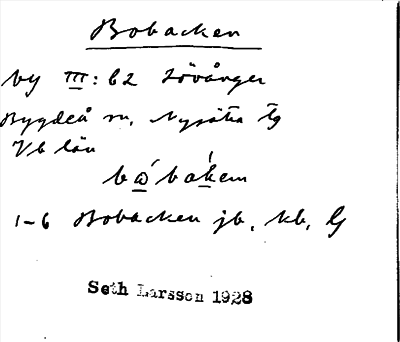 Bobacken
by III: b2 Lövånger
Bygdeå m, Nysätra tg
Vb län
bω´bak̲em
1-6 Bobacken jb, kb, lj
Seth Larsson 1928